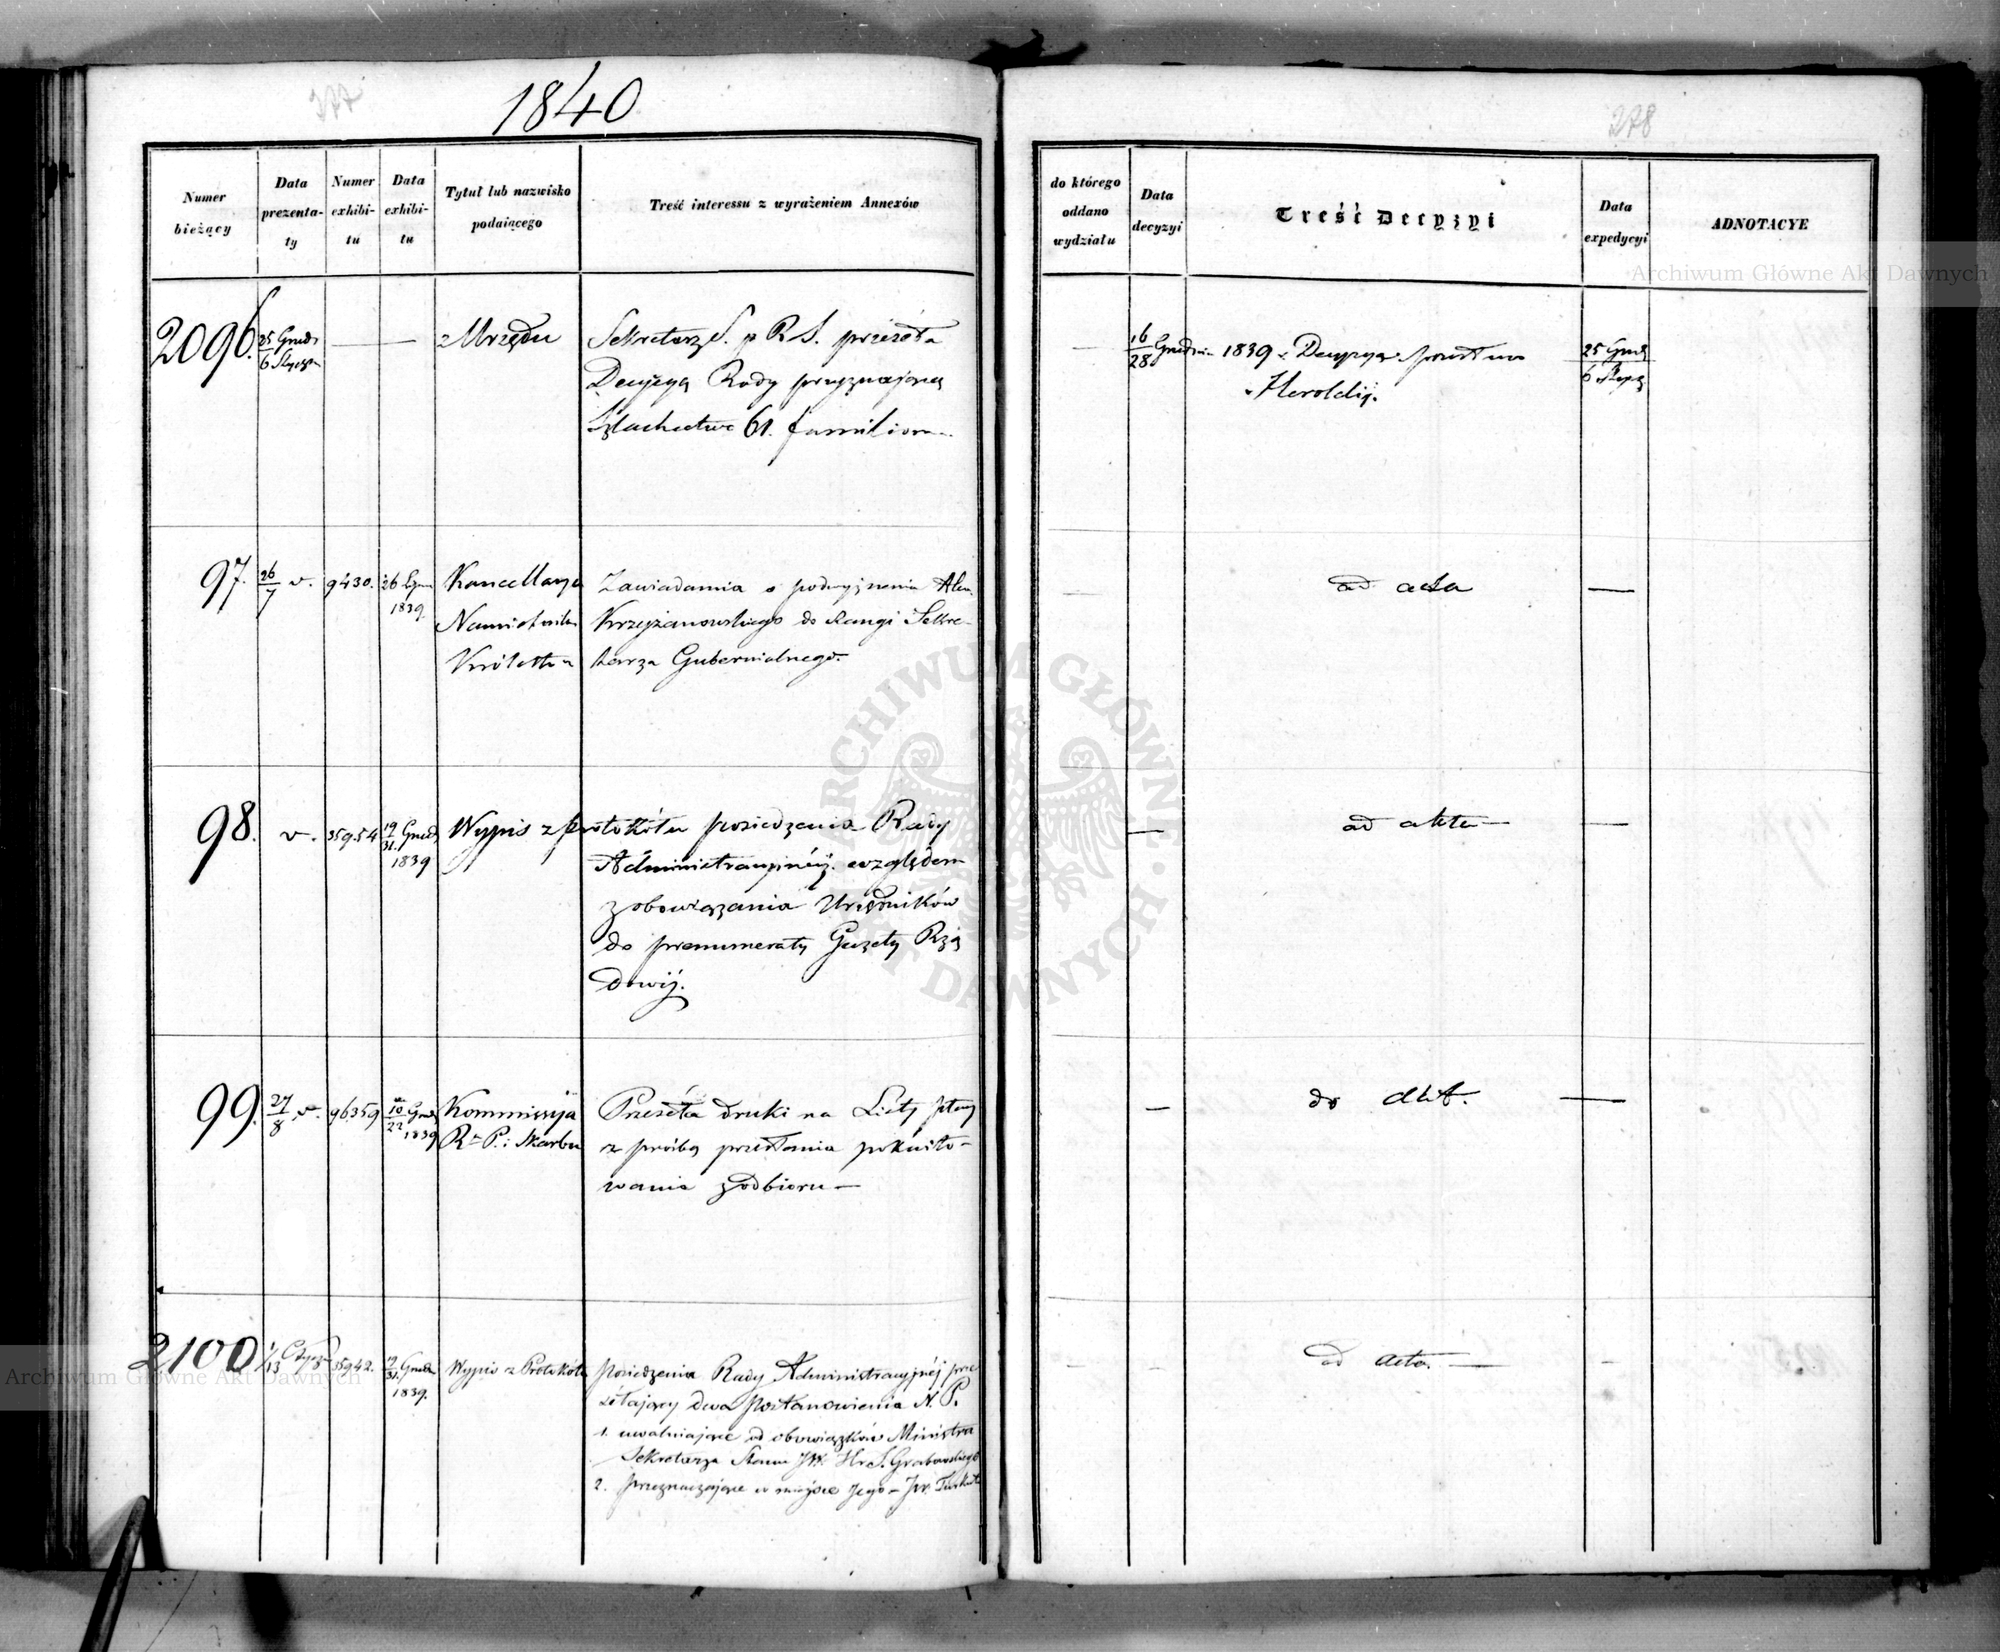 277
1840
Numer bieżący
Data prezentaty
Numer exhibitu
Data exhibitu
Tytuł lub nazwisko podaiącego
Treść interessu z wyrażeniem Annexów
2096.
25 Grud
6 Stycz
z Urzędu
Sekretarz S. p R S. przesyła
Decyzyą Rady przyznającą
Szlachectwo 61. familiom
97.
26
7
v.
9430.
26
1839
Kancellarya
Namiestnika
Królestwa
Zawiadamia o podwyższeniu Alex.
Krzyżanowskiego do Rangi Sekre-
tarza Gubernialnego.
98.
v.
35954
19 Grud
31.
1839
Wypis z protokółu posiedzenia Rady
Administracyjnéj. względem
zobowiązania Urzędników
do prenumeraty Gazety Rzą
dowéj.
99.
27
8
v.
96359
10 Grud
22
1839
Kommissyja
R. P. i Skarbu
Przesyła druki na Listy płacy
z prośbą przesłania pokwito-
wania z odbioru —
2100
1
13
Stycz
35942.
19 Grud
31.
1839.
Wypis z Protokółu posiedzenia Rady Administracyjnéj prze
syłający dwa postanowienia N. P.
1. uwalniające od obowiązków Ministra
Sekretarza Stanu JW. Hr. S. Grabowskiego
2. przeznaczające w miejsce jego – JW. Turkułła
278
do którego oddano wydziału
Data decyzyi
Treść Decyzyi
Data expedycyi
ADNOTACYE
16
28
Grudnia 1839 Decyzya przesłana
Heroldij.
25 Grud
6 Stycz
ad acta
ad akta —
do akt.
ad acta. —
Archiwum Główne Akt Dawnych
ARCHIWUM GŁÓWNE AKT DAWNYCH
Archiwum Główne Akt Dawnych